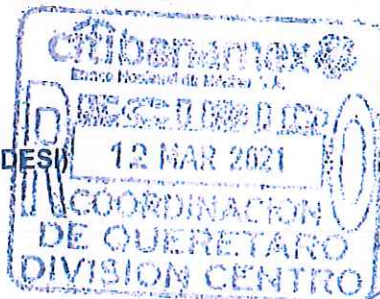 citibanamex
Banco Nacional de México S.A.
DESI)
12 MAR 2021
COORDINACION
DE QUERETARO
DIVISION CENTRO